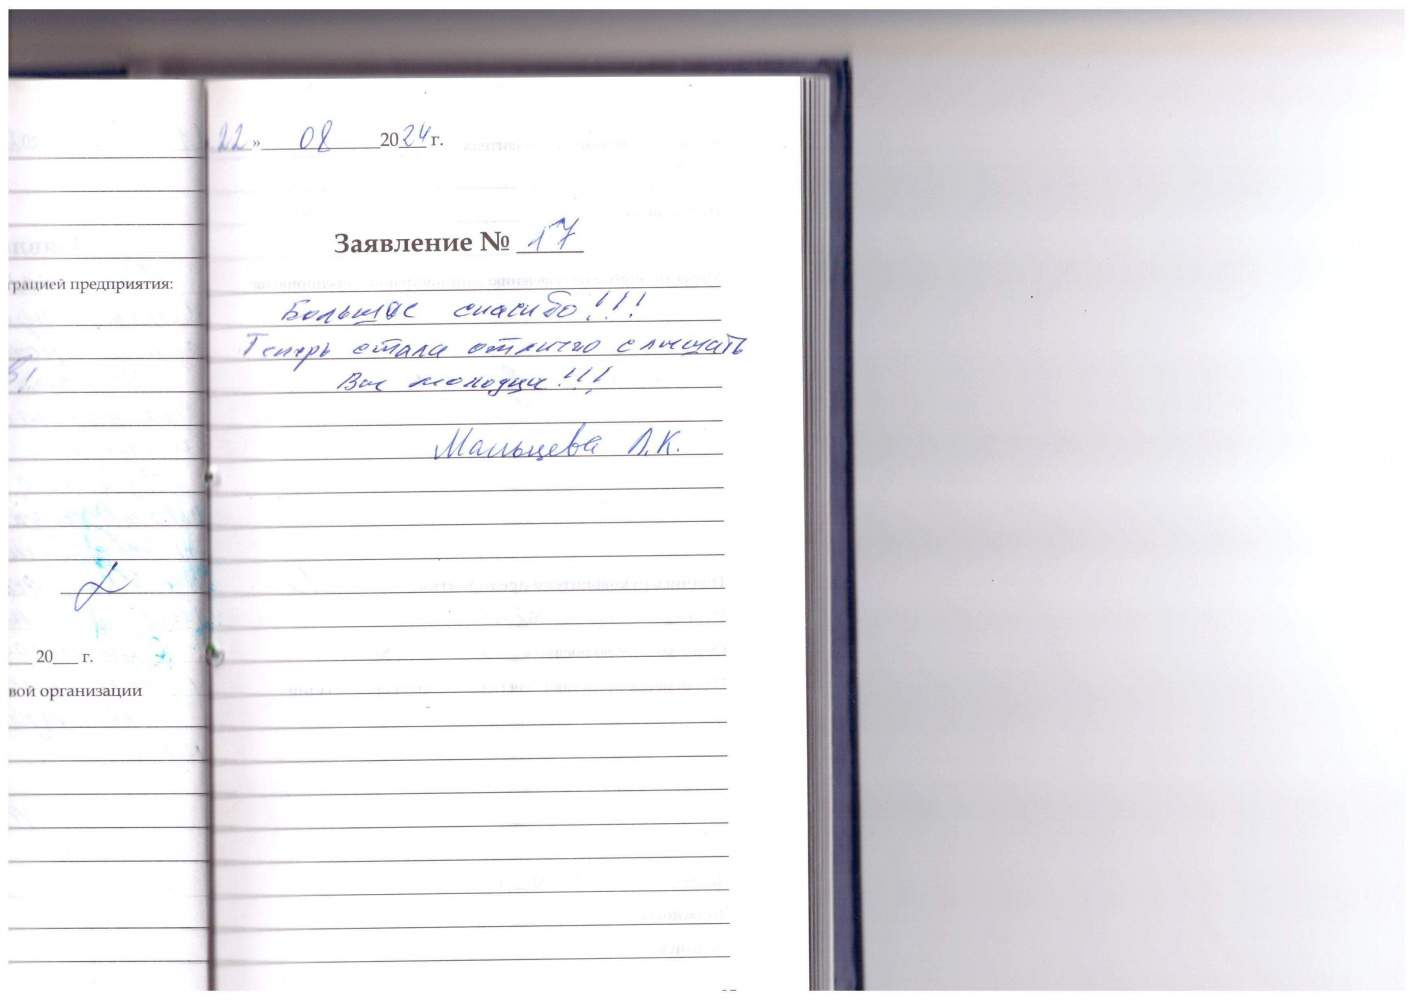 22 » 08 2024 г.
Заявление № 17
рацией предприятия:
Большое спасибо!!!
Теперь стала отлично слышать
Вы молодцы!!!
Мальцева Л.К.
20 г.
вой организации